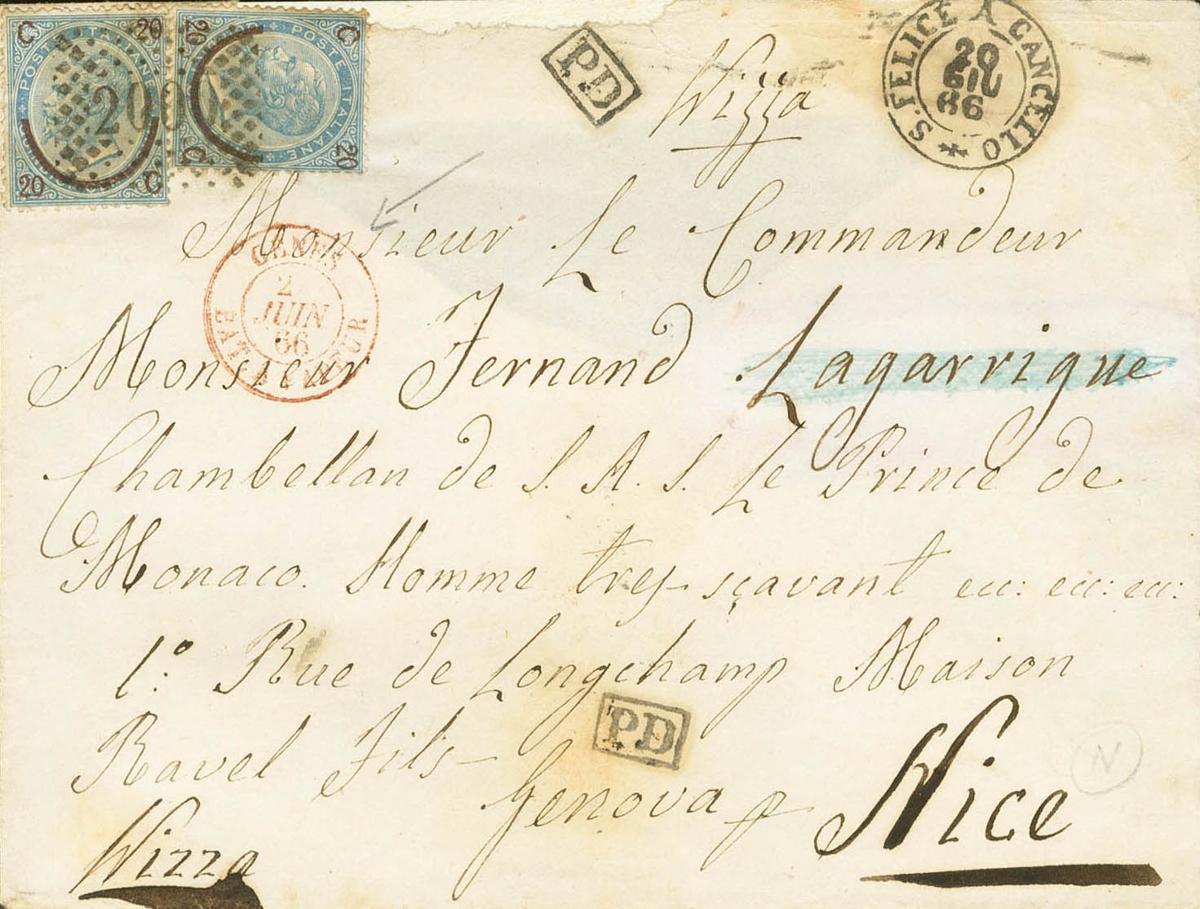 C 20
POSTE ITALIANE
20 C
C 20
POSTE ITALIANE
C 20
PD
Nizza
S. FELICE A CANCELLO
20
GIU
66
Monsieur Le Commandeur
GENES
2
JUIN
66
BAT A VAPEUR
Monsieur Fernand Lagarrigue
Chambellan de S. A. S. Le Prince de
Monaco. Homme tres sçavant ecc: ecc: ecc:
1.° Rue de Longchamp Maison
Ravel Fils
PD
Genova p Nice
N
Nizza